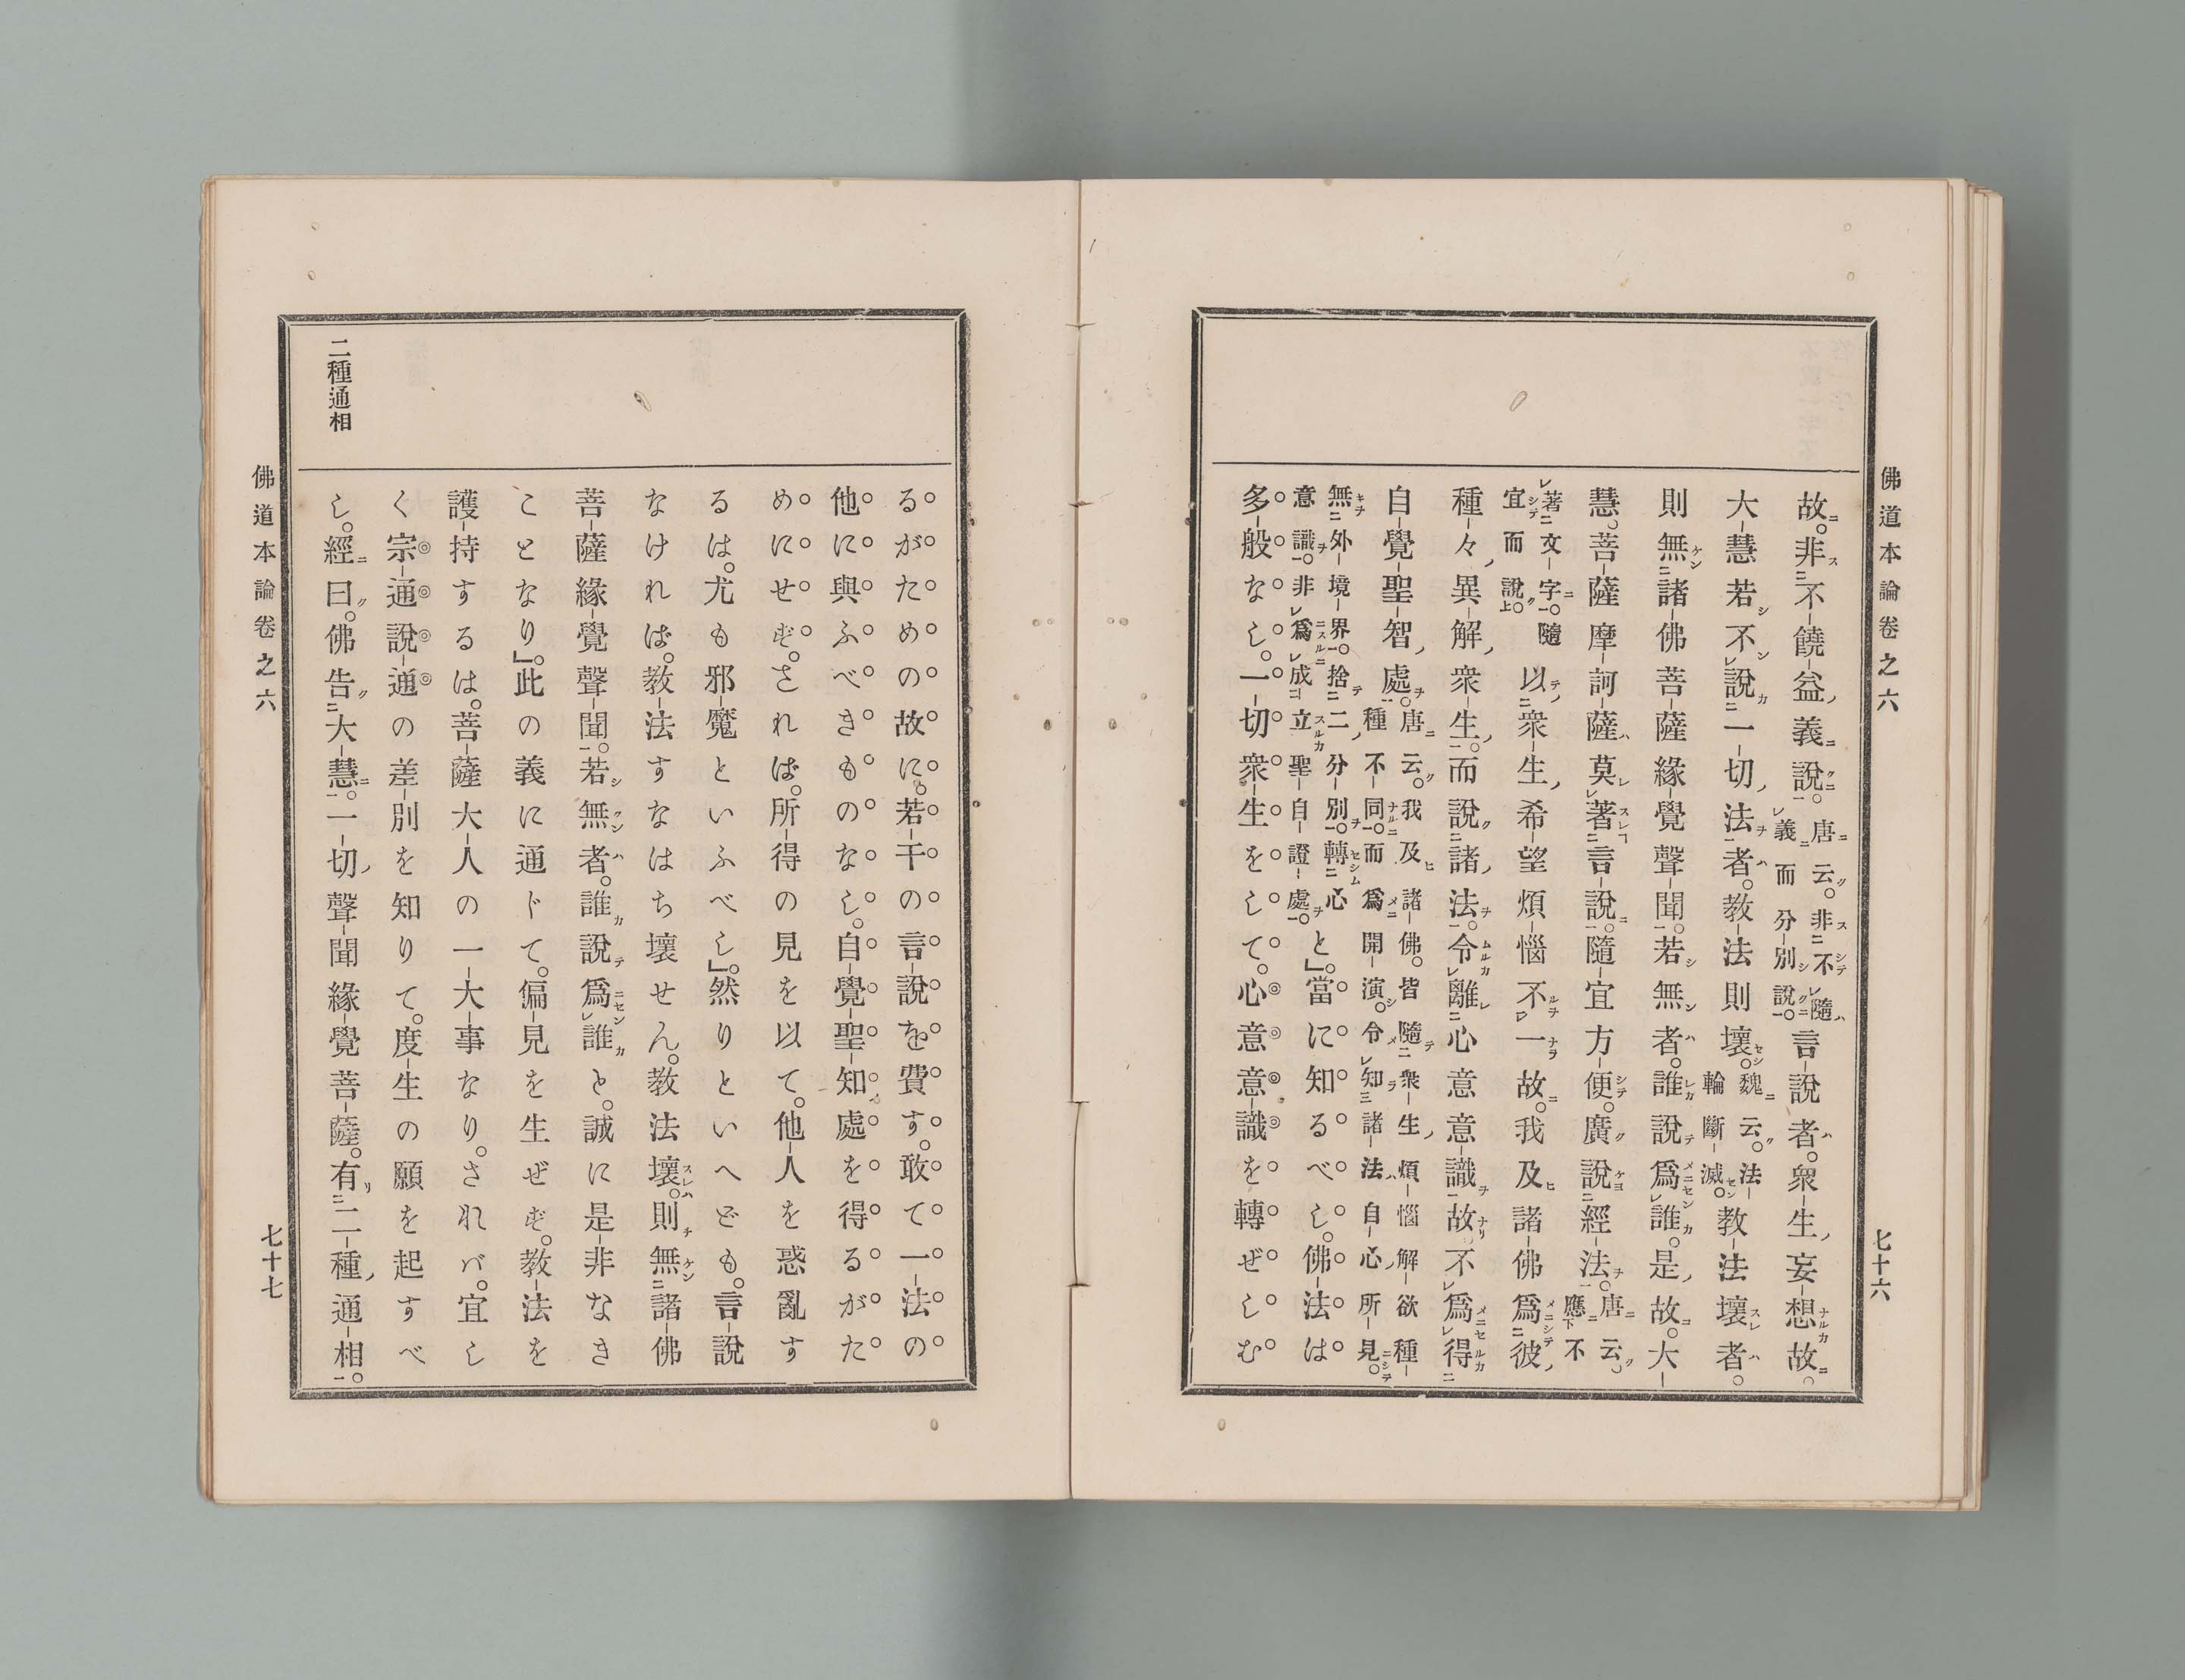 佛道本論卷之六　七十六
故。非不饒益義說。唐云。非不隨義而分別說。言說者。衆生妄想故。
大慧若不說一切法者。教法則壞。魏云。法輪斷滅。教法壞者。
則無諸佛菩薩緣覺聲聞。若無者。誰說爲誰。是故。大
慧。菩薩摩訶薩莫著言說。隨宜方便。廣說經法。唐云。應不
著文字。隨宜而說。以衆生希望煩惱不一故。我及諸佛爲彼
種々異解衆生。而說諸法。令離心意意識故不爲得
自覺聖智處。唐云。我及諸佛。皆隨衆生煩惱解欲種種不同。而爲開演。令知諸法自心所見。
無外境界。捨二分別。轉心意識。非爲成立聖自證處。と」。當に知るべし。佛法は
多般なし。一切衆生をして。心意意識を轉ぜしむ
るがための故に。若干の言說を費す。敢て一法の
他に與ふべきものなし。自覺聖知處を得るがた
めにせず。されば。所得の見を以て。他人を惑亂す
るは。尤も邪魔といふべし」。然りといへども。言說
なければ。教法すなはち壞せん。教法壞。則無諸佛
菩薩緣覺聲聞。若無者。誰說爲誰と。誠に是非なき
ことなり」。此の義に通ドて。偏見を生ぜず。教法を
護持するは。菩薩大人の一大事なり。されバ。宜し
く宗通說通の差別を知りて。度生の願を起すべ
し。經曰。佛告大慧。一切聲聞緣覺菩薩。有二種通相。
二種通相
佛道本論卷之六　七十七